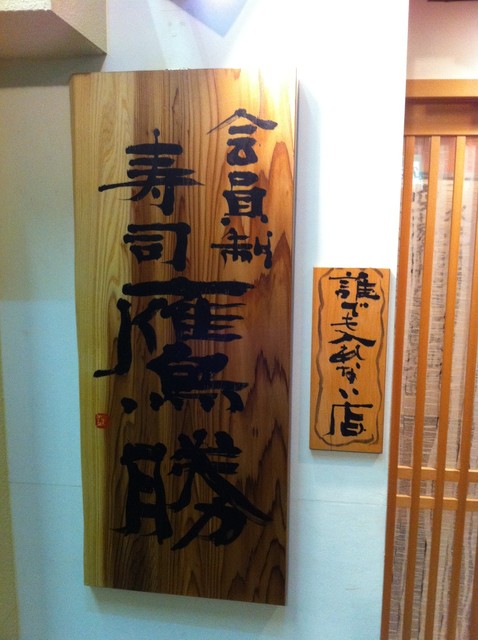 会員制
寿司鷹勝
誰でも入れない店